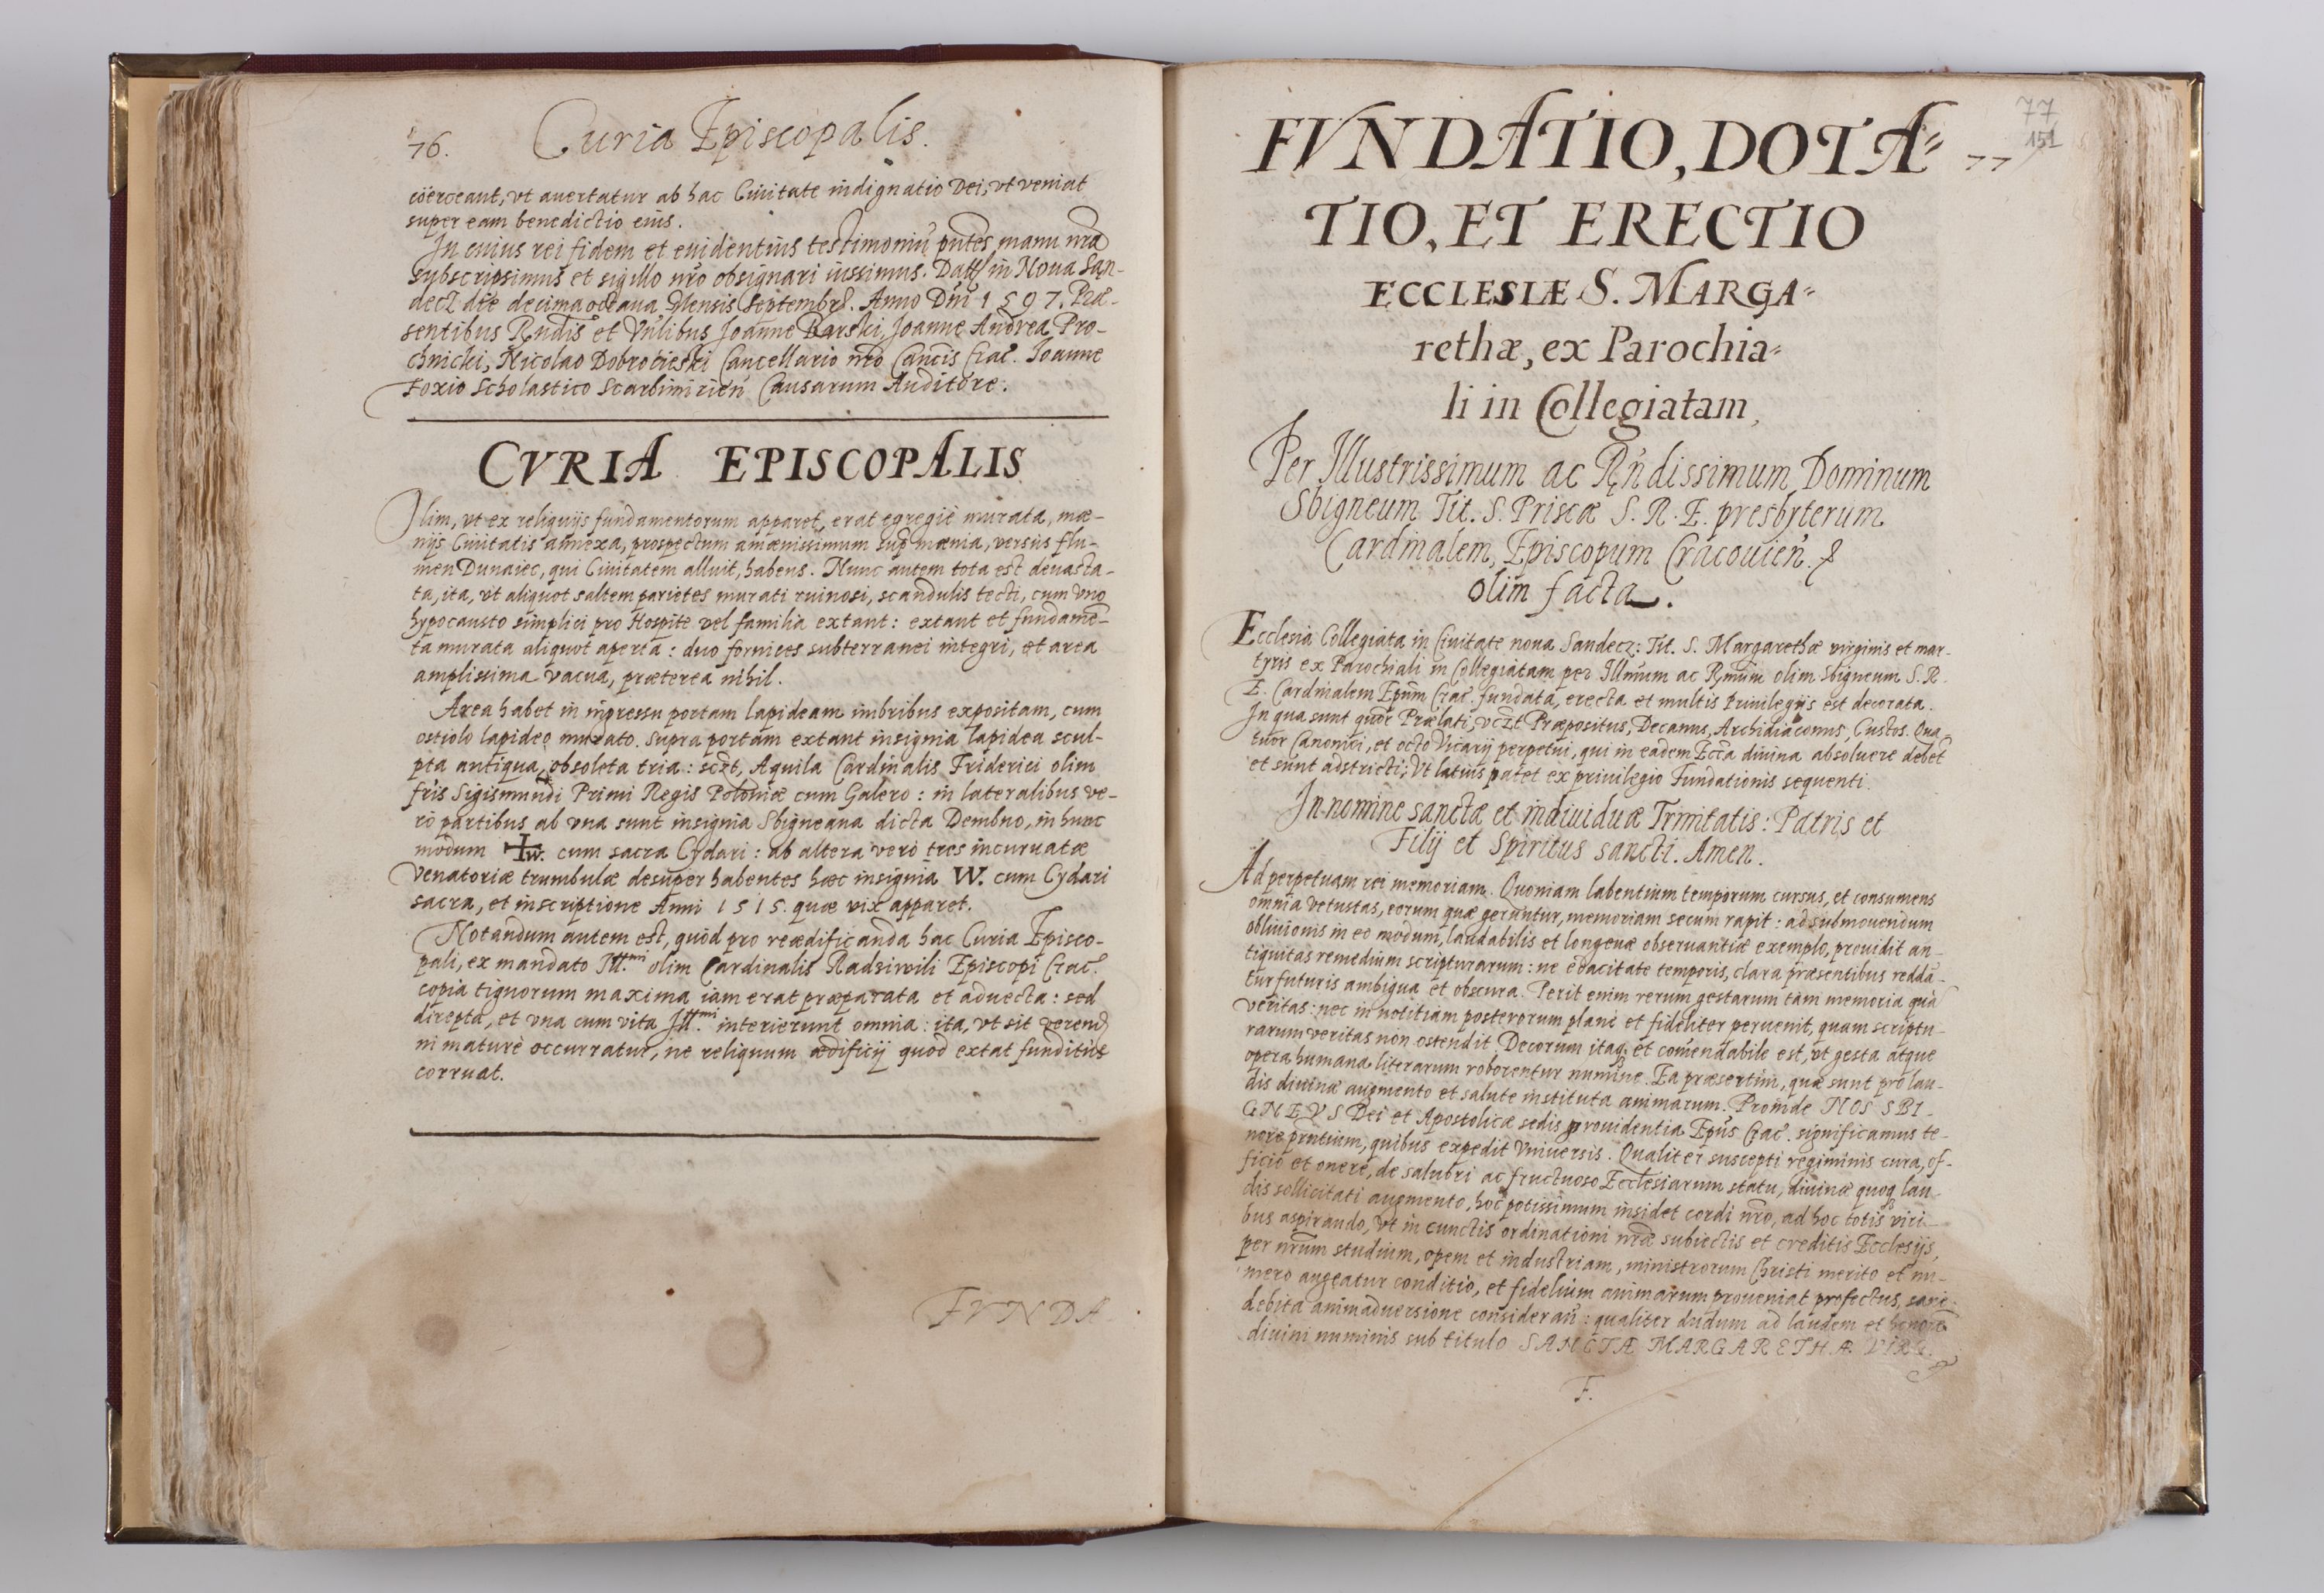 76. Curia Episcopalis.
coërceant, vt auertatur ab hac Ciuitate indignatio Dei, vt veniat
super eam benedictio eius.
In cuius rei fidem et euidentius testimoniū pntes manu nrā
subscripsimus et sigillo nrō obsignari iussimus. Datt in Noua San-
decz die decima octaua Mensis Septembris. Anno Dnī 1597. Præ-
sentibus Rndis et Vnlibus Joanne Barski, Joanne Andrea Pro-
chnicki, Nicolao Dobrocieski Cancellario nrō Cancis Crac. Joanne
Foxio Scholastico Scarbimirień Causarum Auditore.
CVRIA EPISCOPALIS
Olim, vt ex reliquijs fundamentorum apparet, erat egregiè murata, mœ-
nijs Ciuitatis annexa, prospectum amœnissimum sup mœnia, versùs flu-
men Dunaiec, qui Ciuitatem alluit, habens. Nunc autem tota est deuasta-
ta, ita, vt aliquot saltem parietes murati ruinosi, scandulis tecti, cum vno
hypocausto simplici pro Hospite vel familia extant: extant et fundamē-
ta murata aliquot aperta: duo fornices subterranei integri, et area
amplissima vacua, præterea nihil.
Area habet in ingressu portam lapideam imbribus expositam, cum
ostiolo lapideo murato. Supra portam extant insignia lapidea scul-
pta antiqua, obsoleta tria: sczt, Aquila Cardinalis Friderici olim
fris Sigismundi Primi Regis Poloniæ cum Galero: in lateralibus ve-
rò partibus ab vna sunt insignia Sbigneana dicta Dembno, in hunc
modum W. cum sacra Cydari: ab altera verò tres incuruatæ
venatoriæ trumbulæ desuper habentes hæc insignia W. cum Cydari
sacra, et inscriptione Anni 1515. quæ vix apparet.
Notandum autem est, quòd pro reædificanda hac Curia Episco-
pali, ex mandato Ill.mi olim Cardinalis Radziwili Episcopi Crac.
copia tignorum maxima iam erat præparata et aduecta: sed
direpta, et vna cum vita Ill.mi interierunt omnia: ita, vt sit verend
ni maturè occurratur, ne reliquum ædificij quod extat funditùs
corruat.
FVNDA-
77
151
FVNDATIO, DOTA= 77
TIO, ET ERECTIO
ECCLESIÆ S. MARGA=
rethæ, ex Parochia=
li in Collegiatam,
Per Illustrissimum ac Rńdissimum Dominum
Sbigneum Tit. S. Priscæ S. R. E. presbyterum
Cardinalem, Episcopum Cracouień. &
olim facta.
Ecclesia Collegiata in Ciuitate noua Sandecz: Tit. S. Margarethæ virginis et mar-
tyris ex Parochiali in Collegiatam per Illmum ac Rmum olim Sbigneum S. R.
E. Cardinalem Epum Crac. fundata, erecta et multis priuilegijs est decorata.
In qua sunt quor Prælati, vczt Præpositus, Decanus, Archidiaconus, Custos. Qua-
tuor Canonici, et octo Vicarij perpetui, qui in eadem Eccła diuina absoluere debēt
et sunt adstricti; Vt latius patet ex priuilegio Fundationis sequenti.
In nomine sanctæ et indiuiduæ Trinitatis: Patris et
Filij et Spiritus sancti. Amen.
Ad perpetuam rei memoriam. Quoniam labentium temporum cursus, et consumens
omnia vetustas, eorum quæ gerantur, memoriam secum rapit: ad submouendum
obliuionis in eo modum, laudabilis et longeuæ obseruantiæ exemplo, prouidit an-
tiquitas remedium scripturarum: ne edacitate temporis, clara præsentibus reddā-
tur futuris ambigua et obscura. Perit enim rerum gestarum tàm memoria quā
veritas: nec in notitiam posterorum planè et fideliter peruenit, quam scriptu-
rarum veritas non ostendit. Decorum itaq; et comendabile est, vt gesta atque
opera humana literarum roborentur numine. Ea præsertim, quæ sunt pro lau-
dis diuinæ augmento et salute instituta animarum. Proinde NOS SBI-
GNEVS Dei et Apostolicæ sedis prouidentia Epus Crac. significamus te-
nore prntium, quibus expedit vniuersis. Qualiter suscepti regiminis cura, of-
ficio et onere, de salubri ac fructuoso Ecclesiarum statu, diuinæ quoq lau-
dis sollicitati augmento, hoc potissimum insidet cordi nrō, ad hoc totis viri-
bus aspirando, vt in cunctis ordinationi nræ subiectis et creditis Ecclesijs,
per nrum studium, opem et industriam, ministrorum Christi merito et nu-
mero augeatur conditio, et fidelium animarum proueniat profectus, sanè
debita animaduersione considerań: qualiter dudum ad laudem et honorē
diuini numinis sub titulo SANCTÆ MARGARETHÆ VIRG.
F.